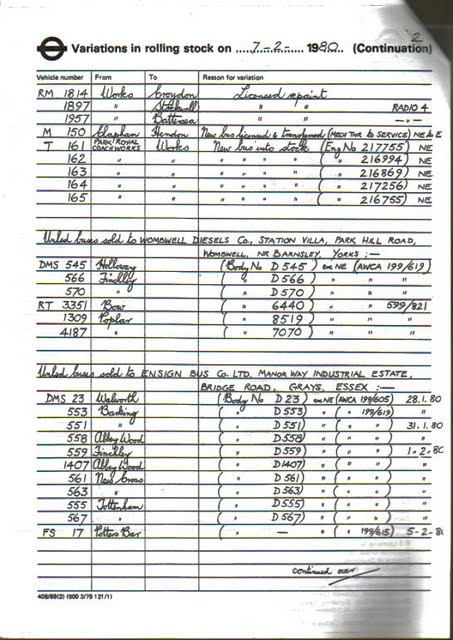 2
Variations in rolling stock on 7-2- 1980 (Continuation)
Vehicle number From To Reason for variation
RM 1814 Works Croydon Licensed repaint
1897 " Stockwell " " RADIO 4
1957 " Battersea " " -"-
M 150 Clapham Hendon New bus licensed & transferred (MECH THR to SERVICE) NE to E
T 161 PARK ROYAL COACHWORKS Works New bus into stock (Eng No 217755) NE
162 " " " " " " ( " 216994) NE
163 " " " " " " ( " 216869) NE
164 " " " " " " ( " 217256) NE
165 " " " " " " ( " 216755) NE
Unlcd buses sold to WOMBWELL DIESELS CO., STATION VILLA, PARK HILL ROAD,
WOMBWELL, NR BARNSLEY, YORKS :—
DMS 545 Holloway (Body No D 545) ex NE (AWCA 199/619)
566 Finchley ( " D 566) " " "
570 " ( " D 570) " " "
RT 3351 Bow ( " 6440) " " 599/821
1309 Poplar ( " 8519) " " "
4187 " ( " 7070) " " "
Unlcd buses sold to ENSIGN BUS CO. LTD. MANOR WAY INDUSTRIAL ESTATE,
BRIDGE ROAD, GRAYS, ESSEX :—
DMS 23 Walworth (Body No D 23) ex NE (AWCA 199/605) 28.1.80
553 Barking ( " D 553) " ( " 199/619) "
551 " ( " D 551) " ( " " ) 31.1.80
558 Abbey Wood ( " D 558) " ( " " ) "
559 Finchley ( " D 559) " ( " " ) 1-2-80
1407 Abbey Wood ( " D 1407) " ( " " ) "
561 New Cross ( " D 561) " ( " " ) "
563 " ( " D 563) " ( " " ) "
555 Tottenham ( " D 555) " ( " " ) "
567 " ( " D 567) " ( " " ) "
FS 17 Potters Bar ( " — ) " ( " 199/615) 5-2-80
continued over
408/89(2) (500 3/79 121/1)